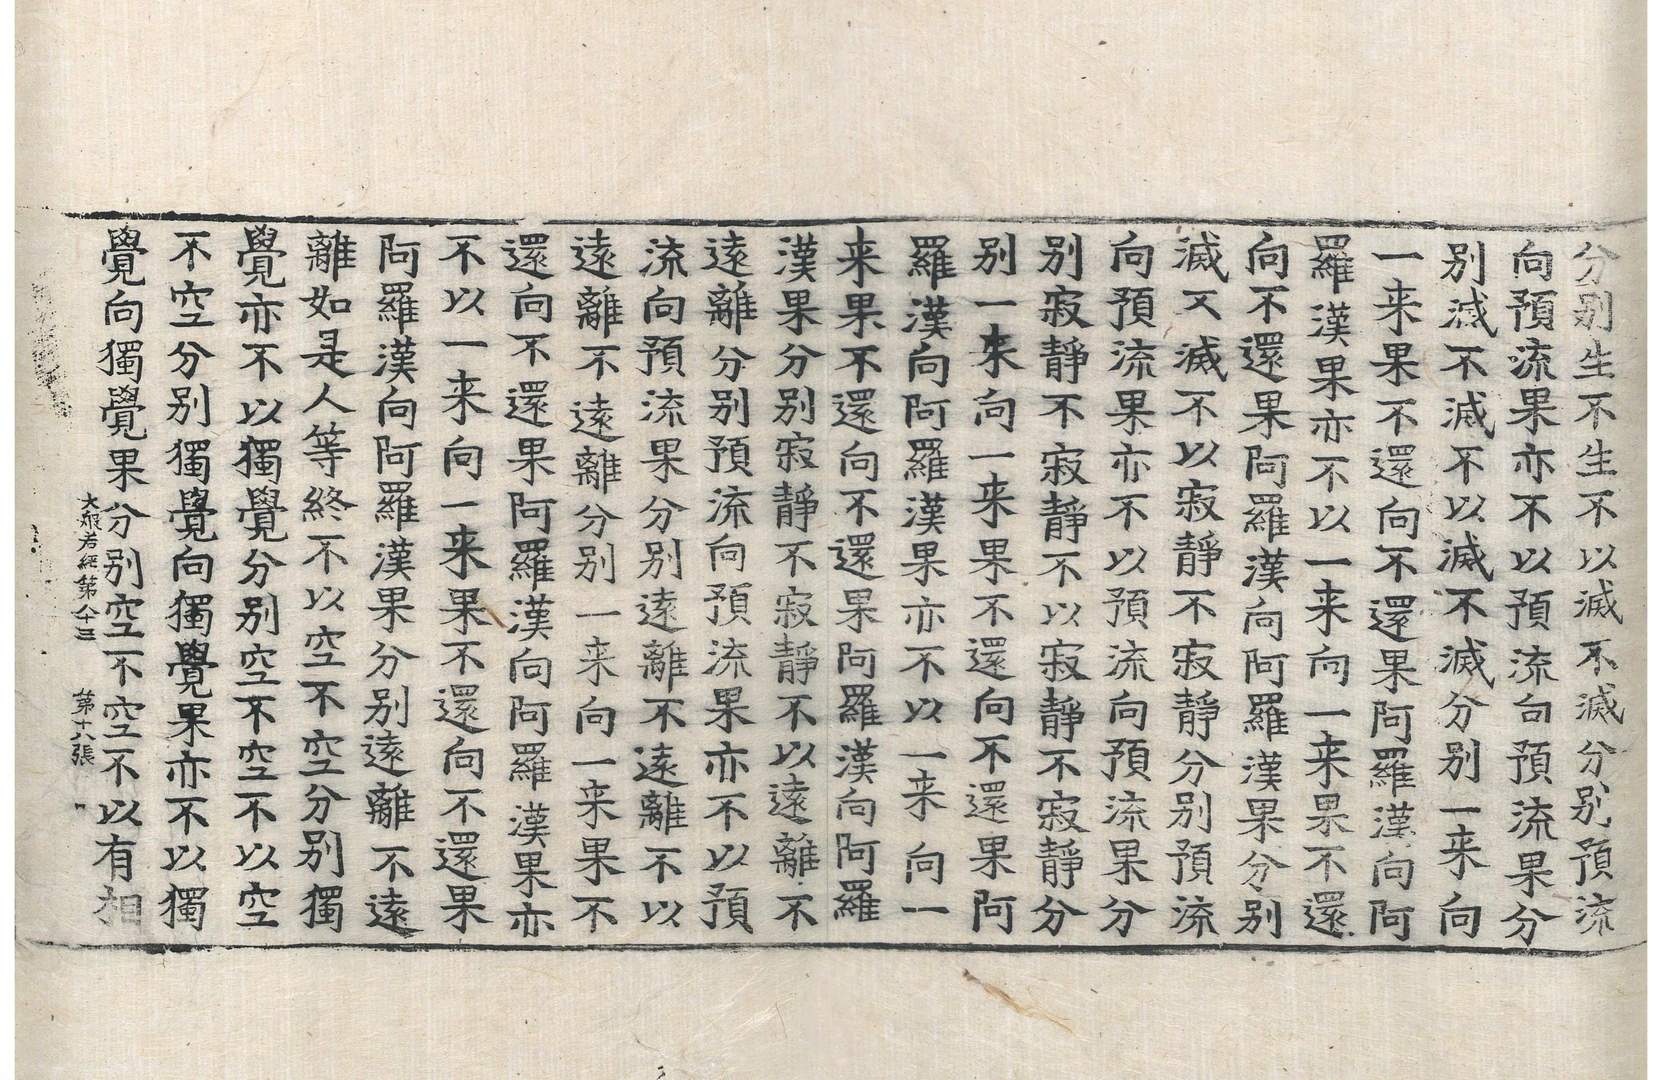 分别生不生不以滅不滅分别預流
向預流果亦不以預流向預流果分
别滅不滅不以滅不滅分别一来向
一来果不還向不還果阿羅漢向阿
羅漢果亦不以一来向一来果不還
向不還果阿羅漢向阿羅漢果分别
滅又滅不以寂靜不寂靜分别預流
向預流果亦不以預流向預流果分
别寂靜不寂靜不以寂靜不寂靜分
别一来向一来果不還向不還果阿
羅漢向阿羅漢果亦不以一来向一
来果不還向不還果阿羅漢向阿羅
漢果分别寂靜不寂靜不以遠離不
遠離分别預流向預流果亦不以預
流向預流果分别遠離不遠離不以
遠離不遠離分别一来向一来果不
還向不還果阿羅漢向阿羅漢果亦
不以一来向一来果不還向不還果
阿羅漢向阿羅漢果分别遠離不遠
離如是人等終不以空不空分别獨
覺亦不以獨覺分别空不空不以空
不空分别獨覺向獨覺果亦不以獨
覺向獨覺果分别空不空不以有相
大般若經第八十三 第十八張